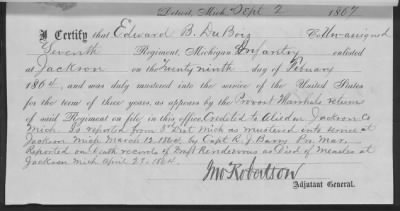 Detroit, Mich. Sept 2 1867
I Certify that Edward B. DuBois Co. Unassigned
Seventh Regiment, Michigan Infantry enlisted
at Jackson on the Twenty ninth day of Febuary
1864, and was duly mustered into the service of the United States
for the term of three years, as appears by the Provost Marshals returns
of said Regiment on file in this office, Credited to Jackson Co
Mich. Is reported from 3rd Dist Mich as mustered into service at
Jackson Mich March 12 1864 by Capt R. J. Barry Pro. Mar.
Reported on Death records of Draft Rendezvous as Died of Measles at
Jackson Mich April 27 1864.
Jno Robertson
Adjutant General.